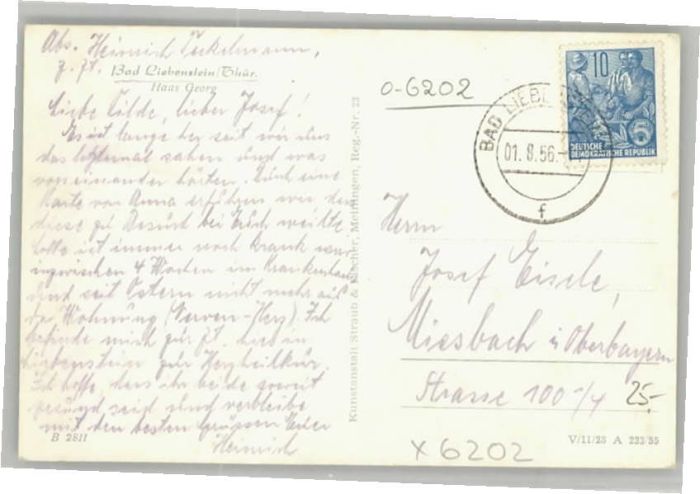 Abs. Heinrich Teckelmann,
z. Zt. Bad Liebenstein/Thür.
Haus Georg
Liebe Tilde, lieber Josef!
Es ist lange her seit wir uns
das letztemal sahen und was
voneinander hörten. Durch eine
Karte von Anna erfuhren wir dass
diese zu Besuch bei Euch weilte.
ist immer noch krank war
inzwischen 4 Wochen im Krankenhaus
und seit Ostern nicht mehr aus
der Wohnung (Nerven-Herz). Ich
befinde mich zur Zt. hier in
Liebenstein zur Herzheilkur.
Ich hoffe, dass ihr beide soweit
gesund seid und verbleibe
mit den besten Grüssen Euer
Heinrich
B 2811
Kunstanstalt Straub & Fischer, Meiningen, Reg.-Nr. 23
0-6202
BAD LIEBENSTEIN
01.8.56.
f
10
5
DEUTSCHE
DEMOKRATISCHE REPUBLIK
Herrn
Josef Eisele,
Miesbach i/Oberbayern
Strasse 100-/4
25.-
X 6202
V/11/28 A 233/55